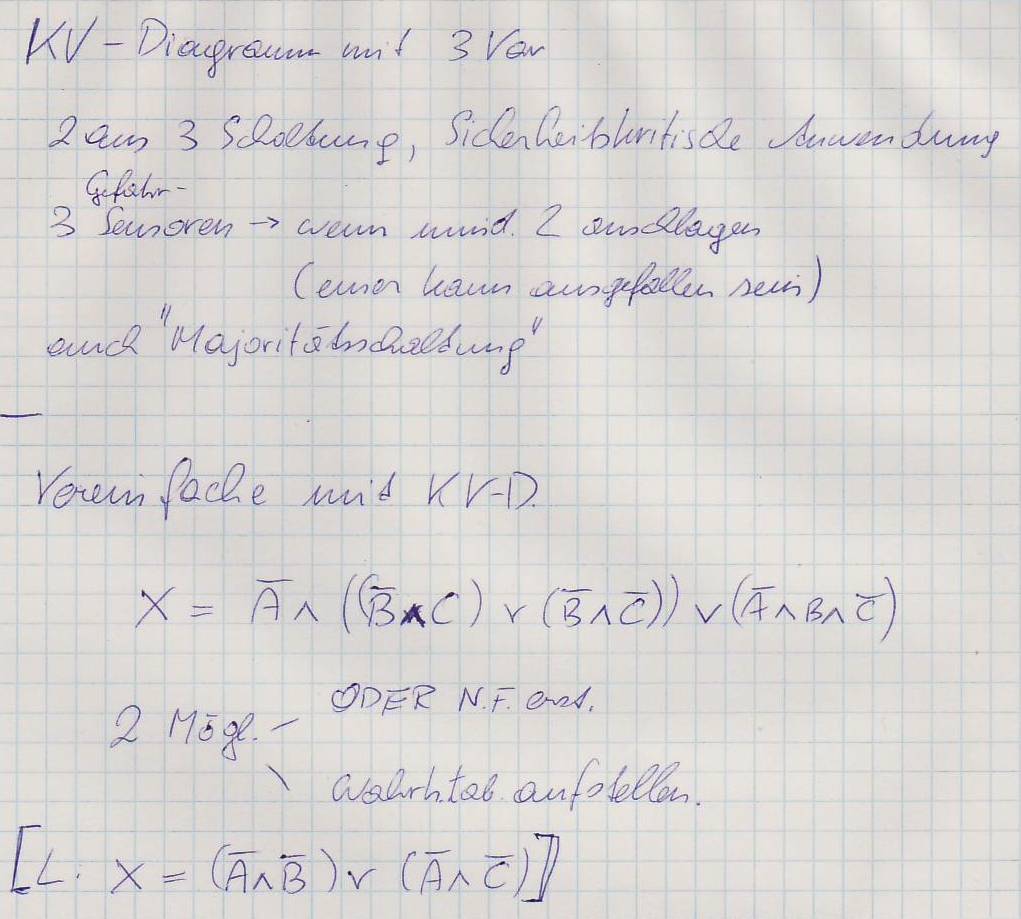 KV-Diagramm mit 3 Var
2 aus 3 Schaltung, Sicherheitskritische Anwendung
Gefahr-
3 Sensoren → wenn mind. 2 anschlagen
(einer kann ausgefallen sein)
auch "Majoritätsschaltung"
Vereinfache mit KV-D.
X = A̅ ∧ ((B̅ ∧ C) ∨ (B̅ ∧ C̅)) ∨ (A̅ ∧ B ∧ C̅)
2 Mögl. – ODER N.F. erst.
\ Wahrh.tab. aufstellen.
[L: X = (A̅ ∧ B̅) ∨ (A̅ ∧ C̅)]